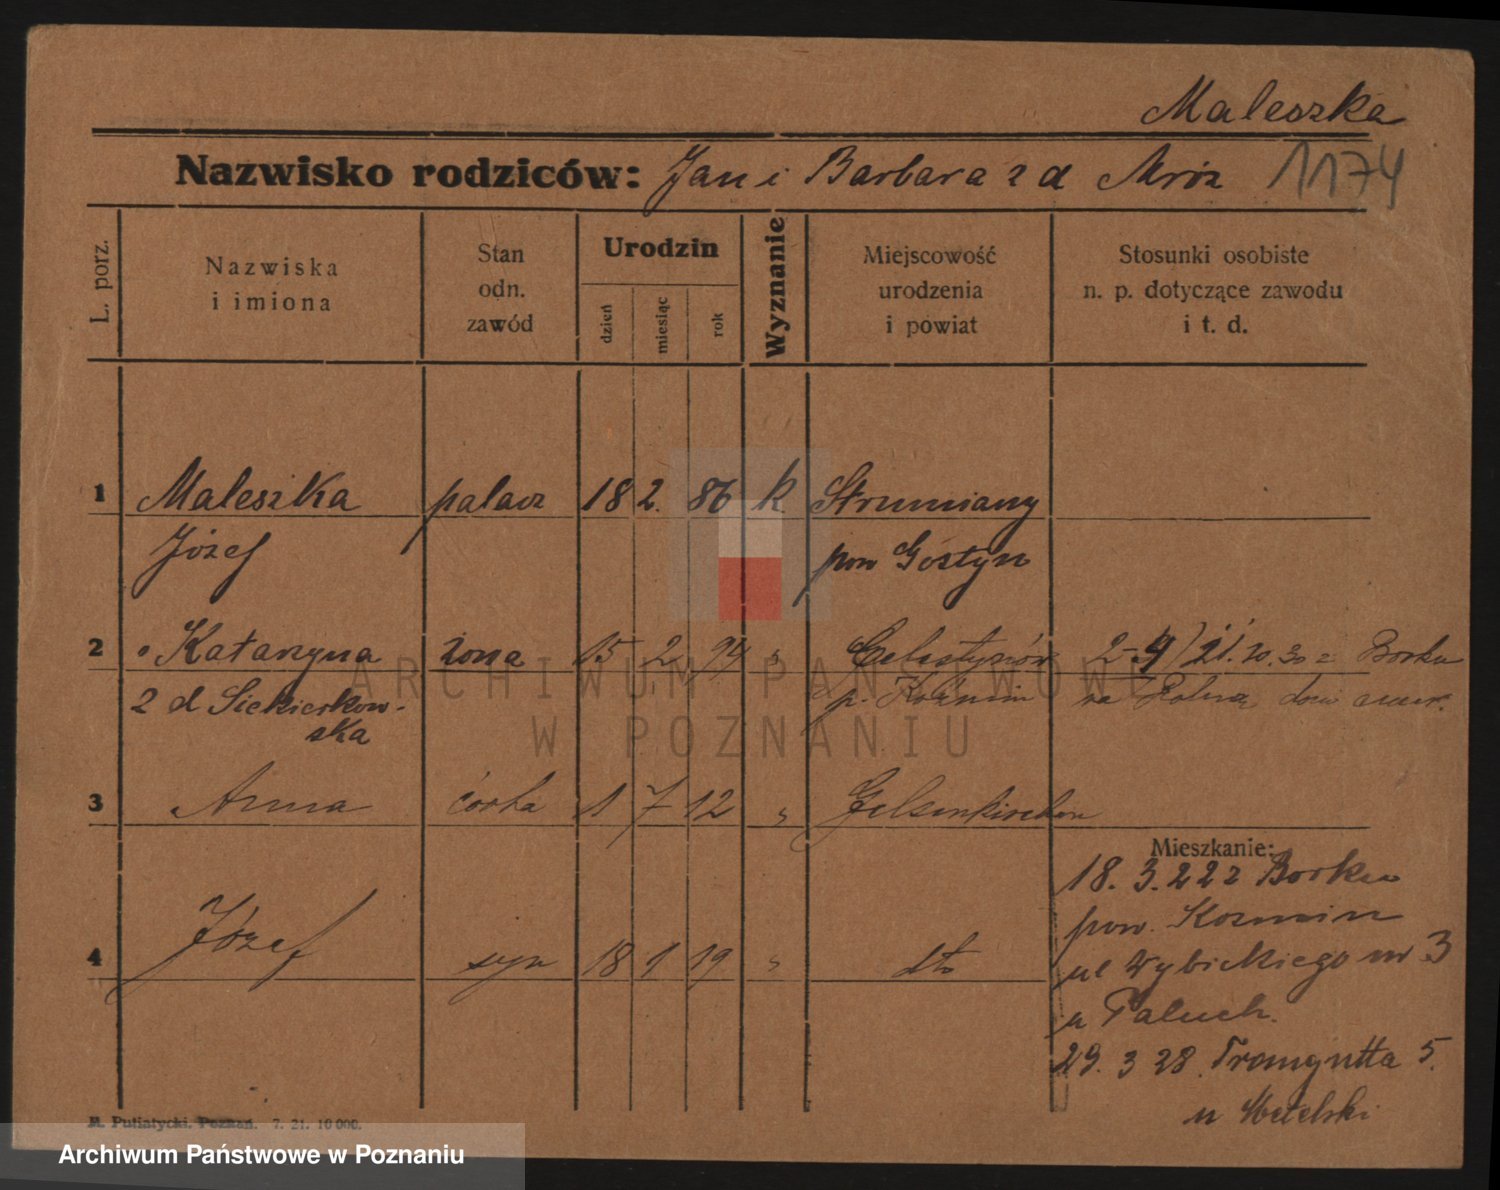 Maleszka
Nazwisko rodziców: Jan i Barbara z d Mróz 1174
L. porz.
Nazwiska
i imiona
Stan
odn.
zawód
Urodzin
dzień
miesiąc
rok
Wyznanie
Miejscowość
urodzenia
i powiat
Stosunki osobiste
n. p. dotyczące zawodu
i t. d.
1 Maleszka palacz 18 2. 86 k. Strumiany
Józef pow Gostyn
2 Katarzyna żona 15 2 94 " Celestynów 2-9/21. 20. 30 z Borku
z d Siekierkow- p. Koźmin na
ska
3 Anna córka 1 7 12 " Gelsenkirchen
Mieszkanie:
18. 3. 22 z Borku
pow. Kozmin
4 Józef syn 18 1 19 " dto
ul Wybickiego nr 3
u Paluch.
29. 3 28. Traugutta 5.
u Metelski
M. Putiatycki, Poznań. 7. 21. 10 000.
ARCHIWUM PAŃSTWOWE
W POZNANIU
Archiwum Państwowe w Poznaniu